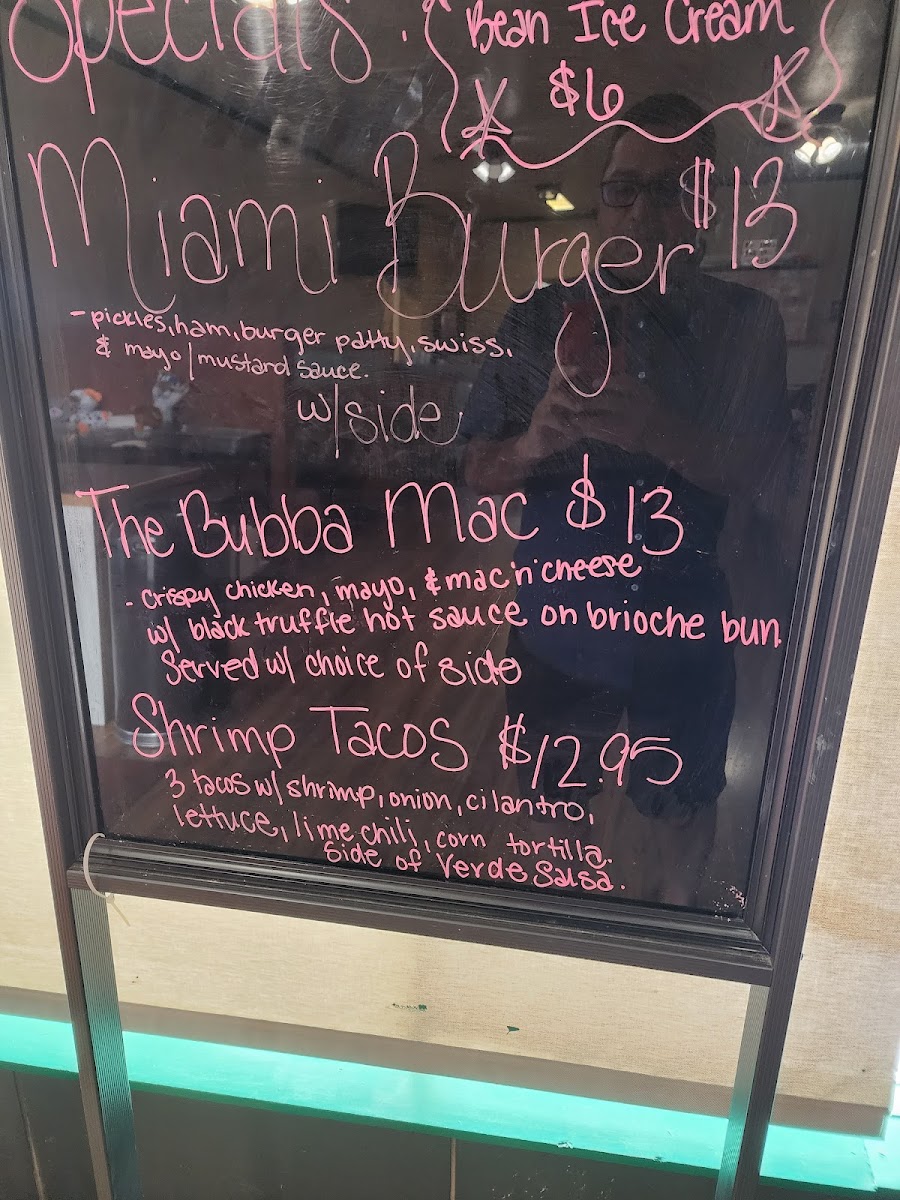 Specials:
Bean Ice Cream
$6
Miami Burger $13
- pickles, ham, burger patty, swiss,
& mayo/mustard sauce.
w/side
The Bubba Mac $13
- crispy chicken, mayo, & mac'n'cheese
w/ black truffle hot sauce on brioche bun.
Served w/ choice of side
Shrimp Tacos $12.95
3 tacos w/ shrimp, onion, cilantro,
lettuce, lime chili, corn tortilla.
Side of Verde Salsa.